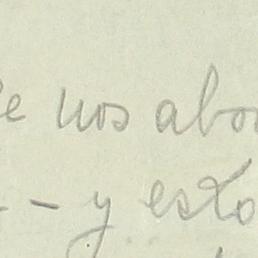 e nos abo
- - y esto